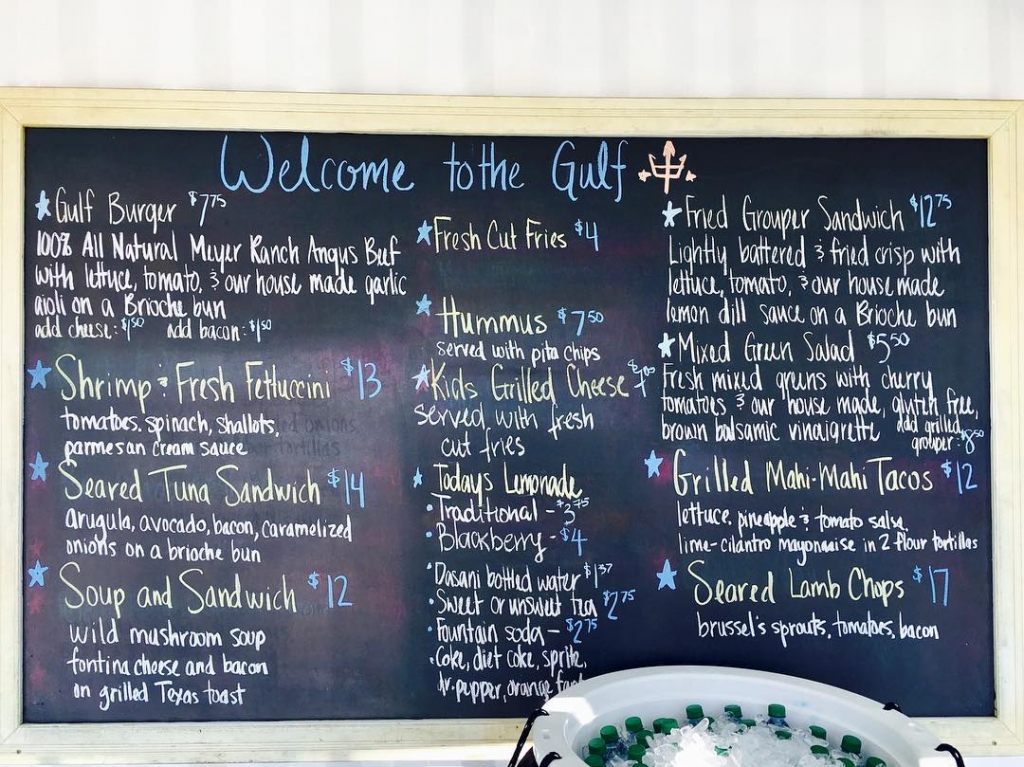 Welcome to the Gulf
Gulf Burger $7.75
100% All Natural Meyer Ranch Angus Beef
with lettuce, tomato, & our house made garlic
aioli on a Brioche bun
add cheese: $1.50 add bacon: $1.50
Shrimp & Fresh Fettuccini $13
tomatoes, spinach, shallots,
parmesan cream sauce
Seared Tuna Sandwich $14
arugula, avocado, bacon, caramelized
onions on a brioche bun
Soup and Sandwich $12
wild mushroom soup
fontina cheese and bacon
on grilled Texas toast
Fresh Cut Fries $4
Hummus $7.50
served with pita chips
Kids Grilled Cheese
served with fresh
cut fries
Todays Lemonade
Traditional - $3.75
Blackberry - $4
Dasani bottled water $1.37
Sweet or unsweet tea $2.75
Fountain soda - $2.75
Coke, diet coke, sprite,
dr. pepper, orange
Fried Grouper Sandwich $12.75
Lightly battered & fried crisp with
lettuce, tomato, & our house made
lemon dill sauce on a Brioche bun
Mixed Green Salad $5.50
Fresh mixed greens with cherry
tomatoes & our house made, gluten free,
brown balsamic vinaigrette add grilled
grouper: $8.50
Grilled Mahi-Mahi Tacos $12
lettuce, pineapple & tomato salsa,
lime-cilantro mayonnaise in 2 flour tortillas
Seared Lamb Chops $17
brussel's sprouts, tomatoes, bacon